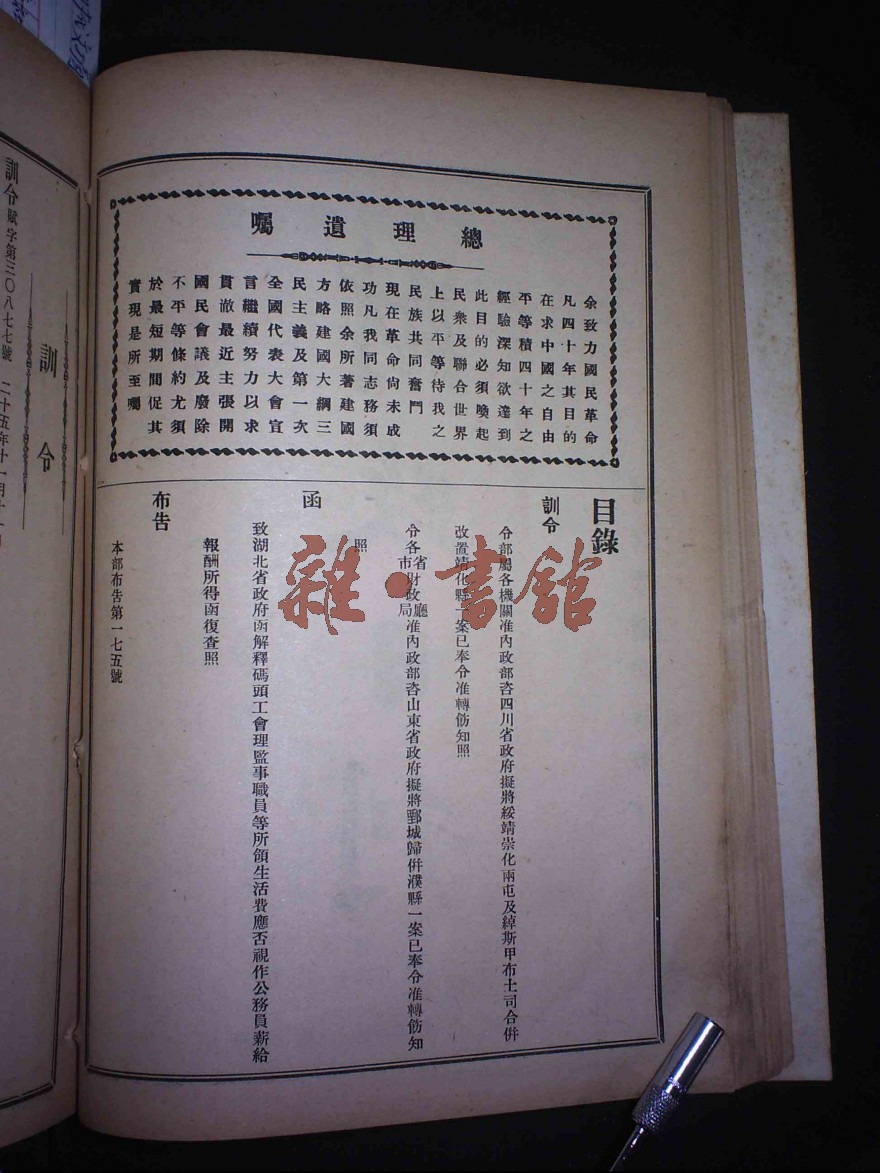 總理遺囑
余致力國民革命
凡四十年其目的
在求中國之自由
平等積四十年之
經驗深知欲達到
此目的必須喚起
民衆及聯合世界
上以平等待我之
民族共同奮鬥
現在革命尙未成
功凡我同志務須
依照余所著建國
方略建國大綱三
民主義及第一次
全國代表大會宣
言繼續努力以求
貫澈最近主張開
國民會議及廢除
不平等條約尤須
於最短期間促其
實現是所至囑
目錄
訓令
令部屬各機關准內政部咨四川省政府擬將綏靖崇化兩屯及綽斯甲布土司合併
改置靖化縣一案已奉令准轉飭知照
令各省市財政廳局准內政部咨山東省政府擬將鄄城歸併濮縣一案已奉令准轉飭知
照
函
致湖北省政府函解釋碼頭工會理監事職員等所領生活費應否視作公務員薪給
報酬所得函復查照
布告
本部布告第一七五號
訓令
訓令賦字第三〇八七七號 二十五年十一月十
雜·書館